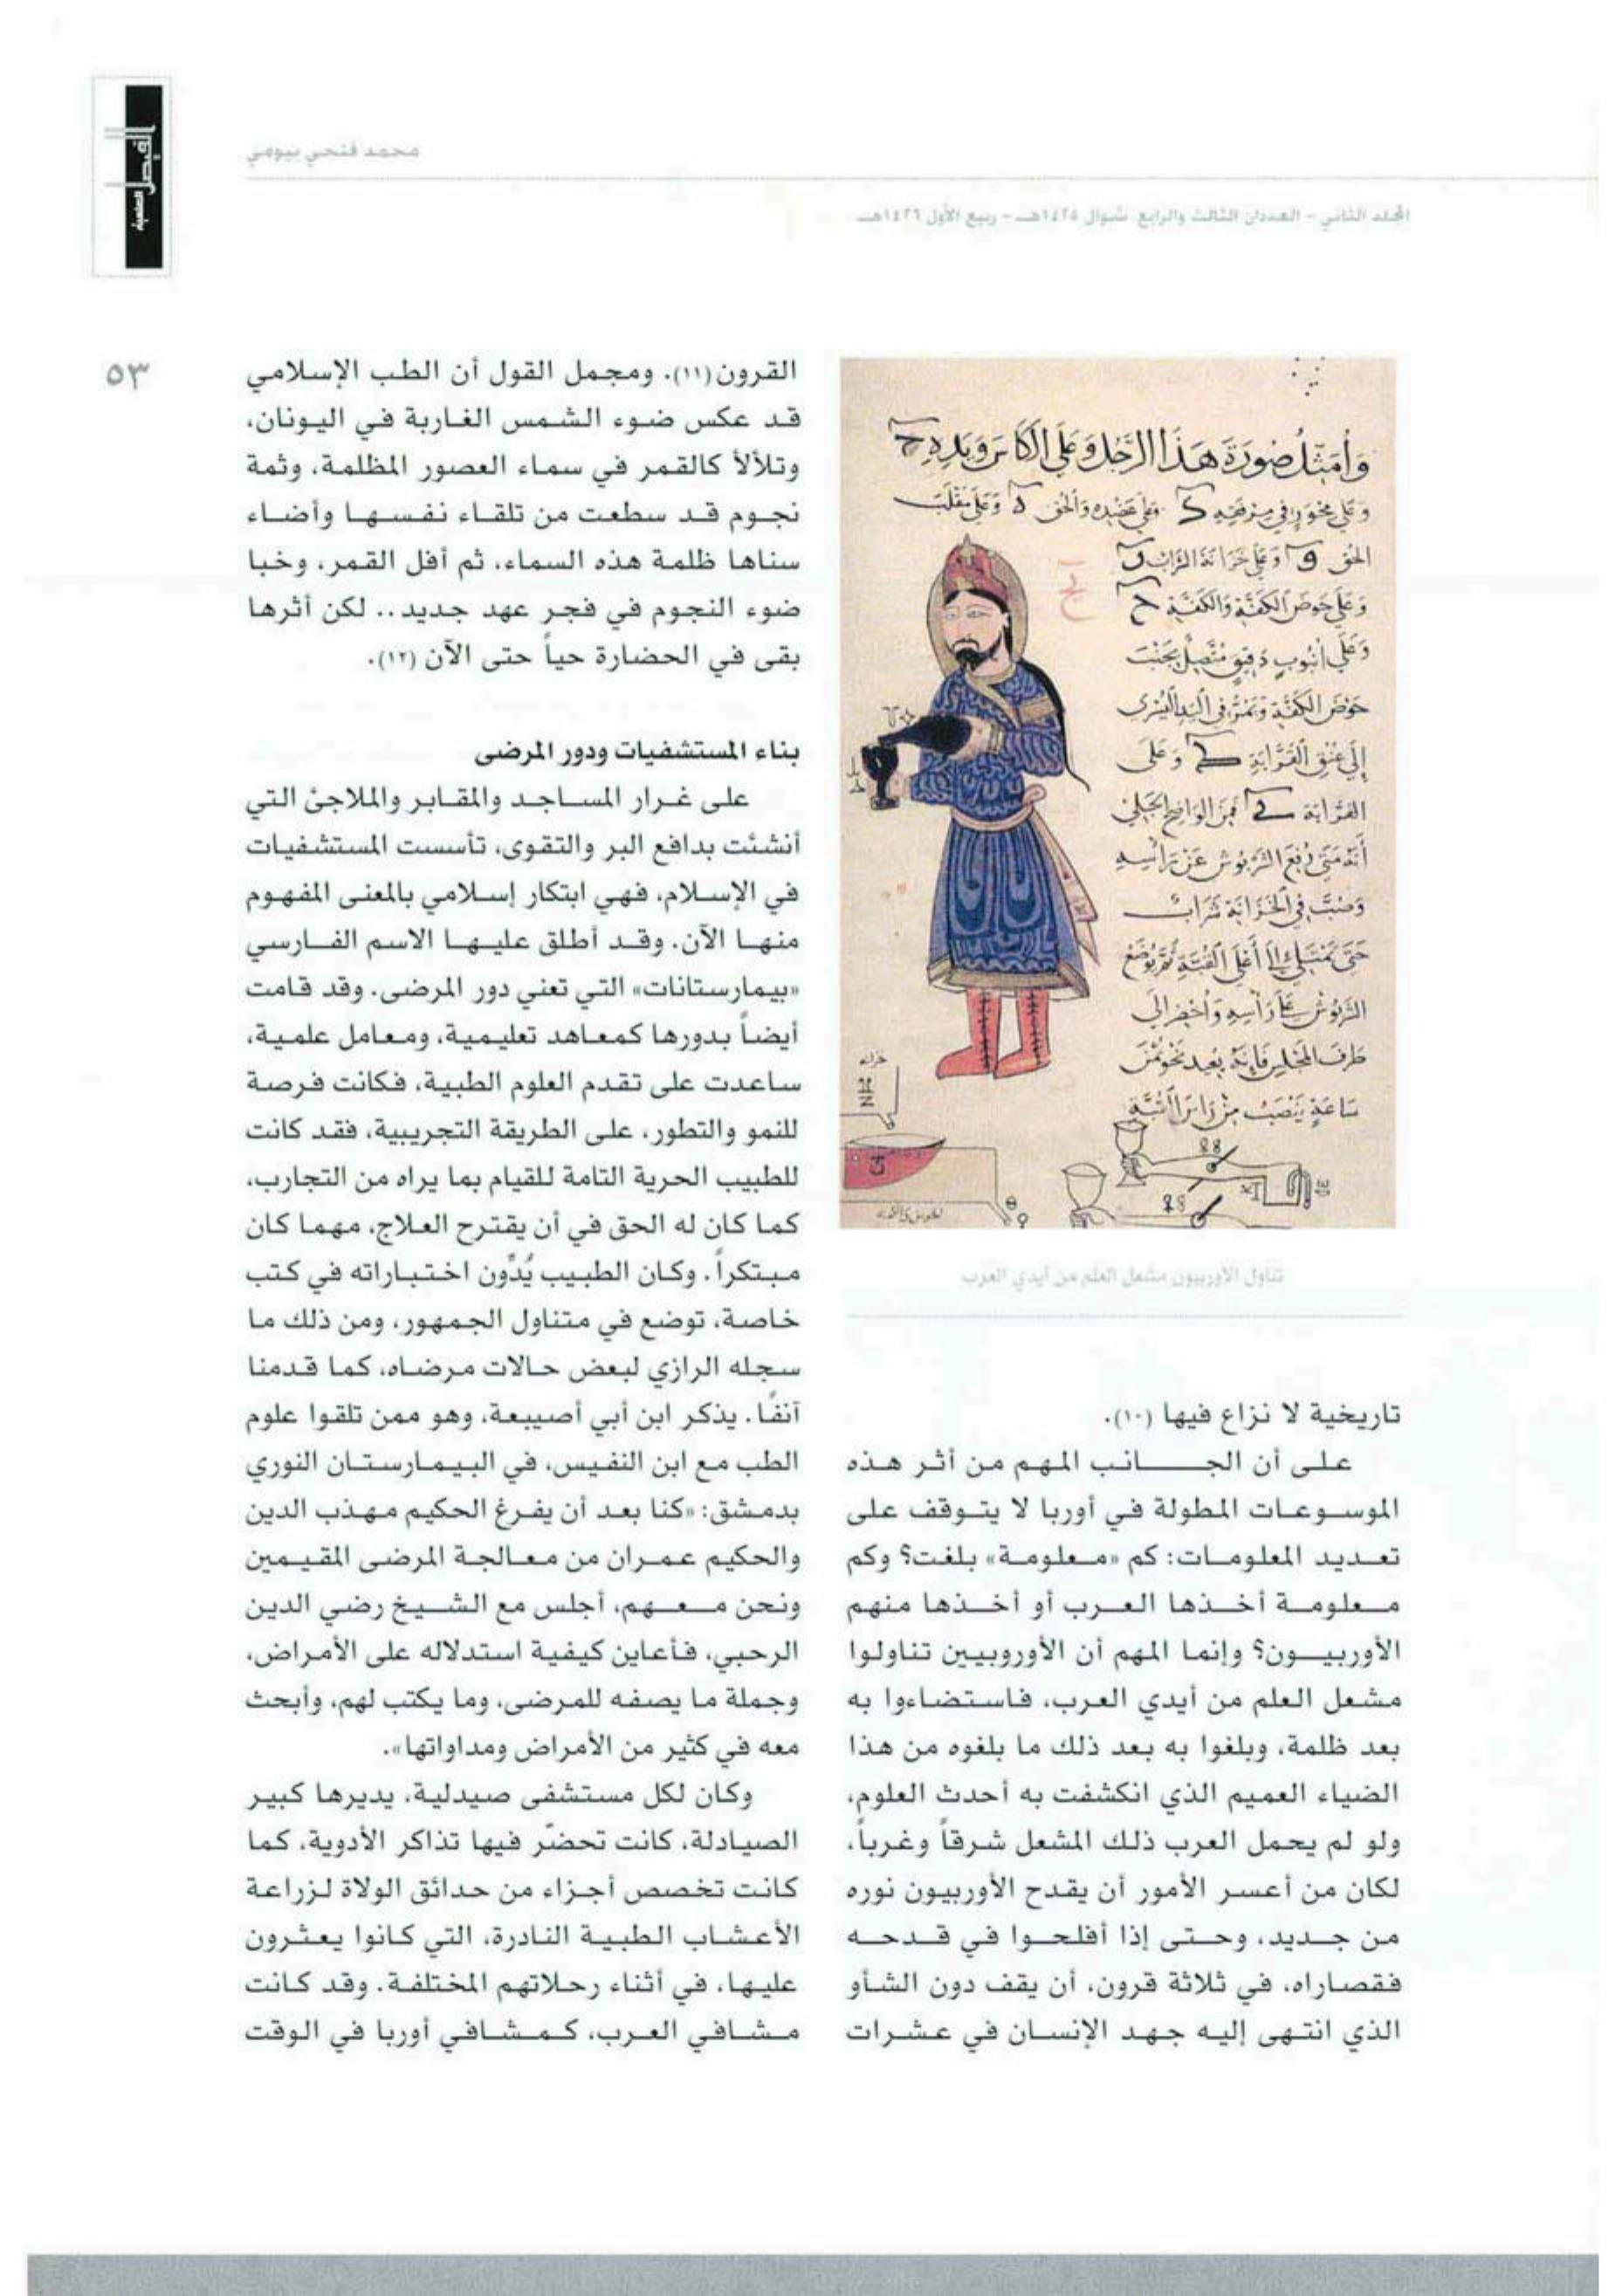 محمد فتحي بيومي
المجلد الثاني - العددان الثالث والرابع شوال ١٤٢٥هـ - ربيع الأول ١٤٢٦هـ
الفيصل
العلمية
٥٣
وعلى
تناول الأوربيون مشعل العلم من أيدي العرب
تاريخية لا نزاع فيها (١٠).
على أن الجانب المهم من أثر هذه
الموسوعات المطولة في أوربا لا يتوقف على
تعديد المعلومات: كم «معلومة» بلغت؟ وكم
معلومة أخذها العرب أو أخذها منهم
الأوربيون؟ وإنما المهم أن الأوروبيين تناولوا
مشعل العلم من أيدي العرب، فاستضاءوا به
بعد ظلمة، وبلغوا به بعد ذلك ما بلغوه من هذا
الضياء العميم الذي انكشفت به أحدث العلوم،
ولو لم يحمل العرب ذلك المشعل شرقاً وغرباً،
لكان من أعسر الأمور أن يقدح الأوربيون نوره
من جديد، وحتى إذا أفلحوا في قدحه
فقصاراه، في ثلاثة قرون، أن يقف دون الشأو
الذي انتهى إليه جهد الإنسان في عشرات
القرون(١١). ومجمل القول أن الطب الإسلامي
قد عكس ضوء الشمس الغاربة في اليونان،
وتلألأ كالقمر في سماء العصور المظلمة، وثمة
نجوم قد سطعت من تلقاء نفسها وأضاء
سناها ظلمة هذه السماء، ثم أفل القمر، وخبا
ضوء النجوم في فجر عهد جديد.. لكن أثرها
بقى في الحضارة حياً حتى الآن (١٢).
بناء المستشفيات ودور المرضى
على غرار المساجد والمقابر والملاجئ التي
أنشئت بدافع البر والتقوى، تأسست المستشفيات
في الإسلام، فهي ابتكار إسلامي بالمعنى المفهوم
منها الآن. وقد أطلق عليها الاسم الفارسي
«بيمارستانات» التي تعني دور المرضى. وقد قامت
أيضاً بدورها كمعاهد تعليمية، ومعامل علمية،
ساعدت على تقدم العلوم الطبية، فكانت فرصة
للنمو والتطور، على الطريقة التجريبية، فقد كانت
للطبيب الحرية التامة للقيام بما يراه من التجارب،
كما كان له الحق في أن يقترح العلاج، مهما كان
مبتكراً. وكان الطبيب يُدَّون اختباراته في كتب
خاصة، توضع في متناول الجمهور، ومن ذلك ما
سجله الرازي لبعض حالات مرضاه، كما قدمنا
آنفًا. يذكر ابن أبي أصيبعة، وهو ممن تلقوا علوم
الطب مع ابن النفيس، في البيمارستان النوري
بدمشق: «كنا بعد أن يفرغ الحكيم مهذب الدين
والحكيم عمران من معالجة المرضى المقيمين
ونحن معهم، أجلس مع الشيخ رضي الدين
الرحبي، فأعاين كيفية استدلاله على الأمراض،
وجملة ما يصفه للمرضى، وما يكتب لهم، وأبحث
معه في كثير من الأمراض ومداواتها».
وكان لكل مستشفى صيدلية، يديرها كبير
الصيادلة، كانت تحضّر فيها تذاكر الأدوية، كما
كانت تخصص أجزاء من حدائق الولاة لزراعة
الأعشاب الطبية النادرة، التي كانوا يعثرون
عليها، في أثناء رحلاتهم المختلفة. وقد كانت
مشافي العرب، كمشافي أوربا في الوقت